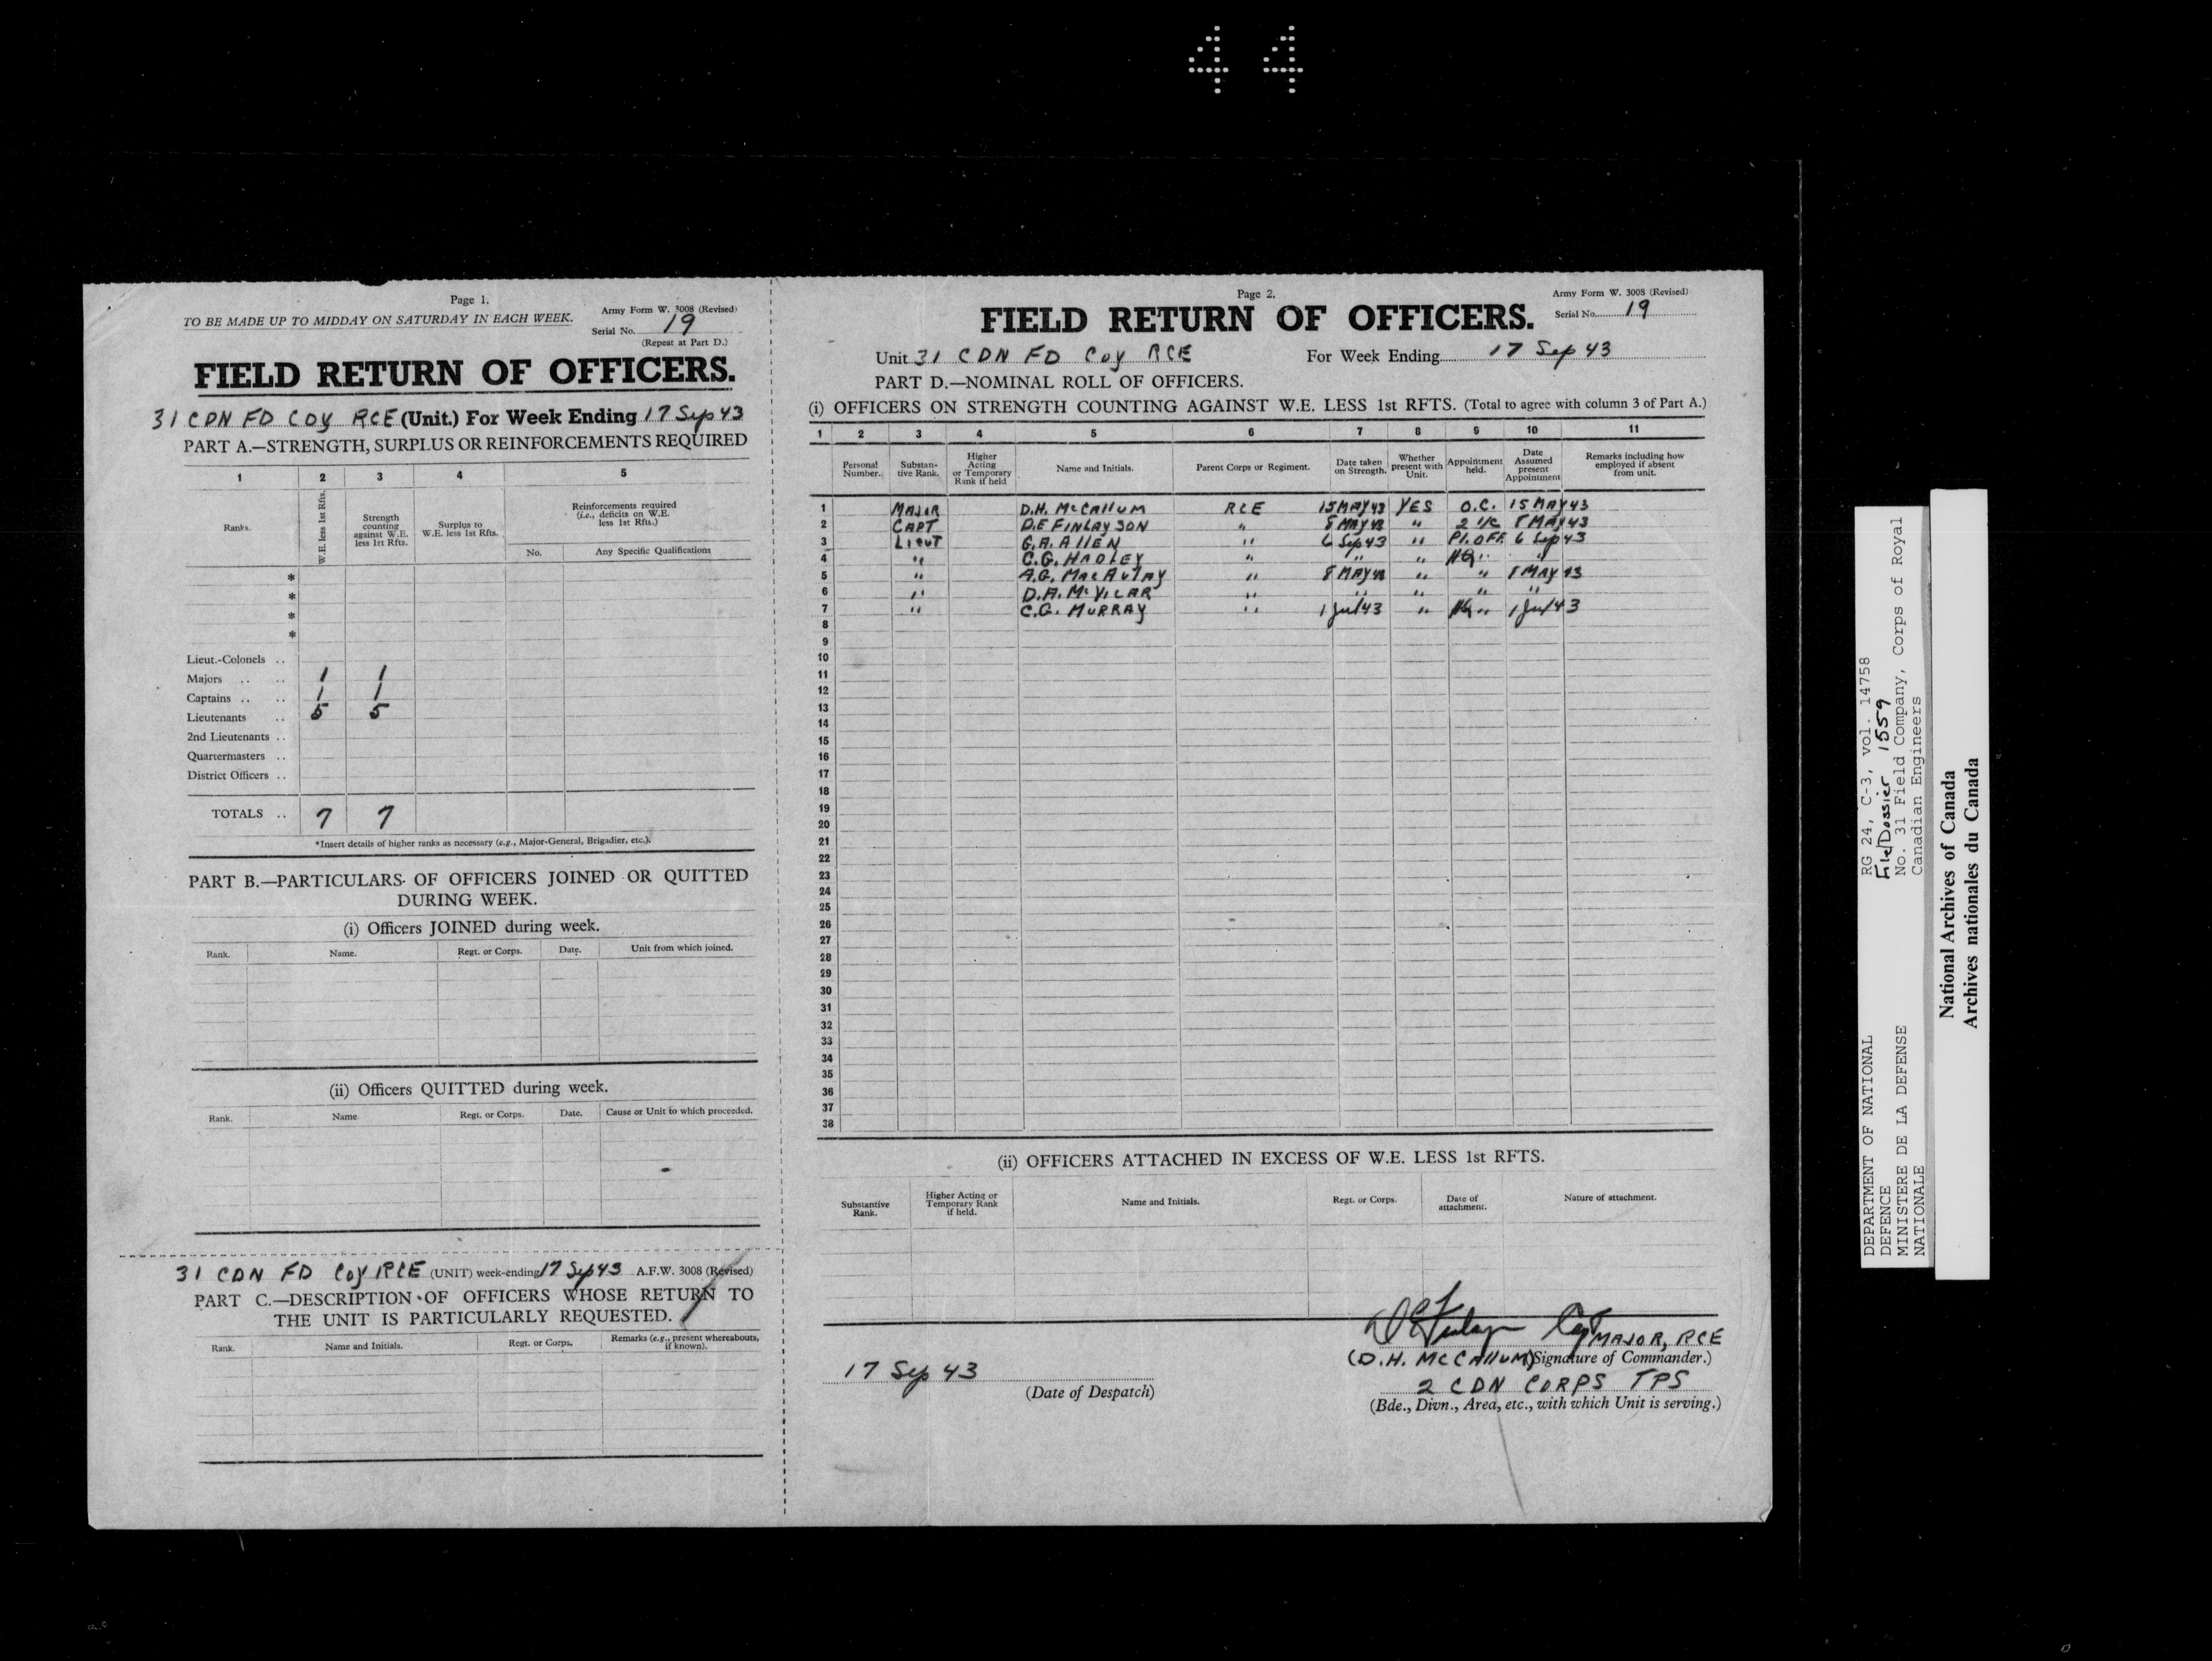 44
Page 1.
TO BE MADE UP TO MIDDAY ON SATURDAY IN EACH WEEK.
Army Form W. 3008 (Revised)
Serial No. 19
(Repeat at Part D.)
FIELD RETURN OF OFFICERS.
31 CDN FD COY RCE (Unit.) For Week Ending 17 Sep 43
PART A.—STRENGTH, SURPLUS OR REINFORCEMENTS REQUIRED
1 2 3 4 5
Ranks.
W.E. less 1st Rfts.
Strength counting against W.E. less 1st Rfts.
Surplus to W.E. less 1st Rfts.
Reinforcements required (i.e., deficits on W.E. less 1st Rfts.)
No. Any Specific Qualifications
*
*
*
*
Lieut.-Colonels ..
Majors .. .. 1 1
Captains .. .. 1 1
Lieutenants .. 5 5
2nd Lieutenants ..
Quartermasters ..
District Officers ..
TOTALS .. 7 7
*Insert details of higher ranks as necessary (e.g., Major-General, Brigadier, etc.).
PART B.—PARTICULARS OF OFFICERS JOINED OR QUITTED
DURING WEEK.
(i) Officers JOINED during week.
Rank. Name. Regt. or Corps. Date. Unit from which joined.
(ii) Officers QUITTED during week.
Rank. Name. Regt. or Corps. Date. Cause or Unit to which proceeded.
31 CDN FD COY RCE (UNIT) week-ending 17 Sep 43 A.F.W. 3008 (Revised)
PART C.—DESCRIPTION OF OFFICERS WHOSE RETURN TO
THE UNIT IS PARTICULARLY REQUESTED.
Rank. Name and Initials. Regt. or Corps. Remarks (e.g., present whereabouts, if known).
Page 2.
Army Form W. 3008 (Revised)
Serial No. 19
FIELD RETURN OF OFFICERS.
Unit 31 CDN FD Coy RCE For Week Ending 17 Sep 43
PART D.—NOMINAL ROLL OF OFFICERS.
(i) OFFICERS ON STRENGTH COUNTING AGAINST W.E. LESS 1st RFTS. (Total to agree with column 3 of Part A.)
1 2 3 4 5 6 7 8 9 10 11
Personal Number.
Substantive Rank.
Higher Acting or Temporary Rank if held
Name and Initials.
Parent Corps or Regiment.
Date taken on Strength.
Whether present with Unit.
Appointment held.
Date Assumed present Appointment
Remarks including how employed if absent from unit.
1 MAJOR D.H. McCallum RCE 15 MAY 43 YES O.C. 15 MAY 43
2 CAPT D.E FINLAYSON " 8 MAY 43 " 2 i/c 8 MAY 43
3 LIEUT G.A. ALLEN " 6 Sep 43 " Pl. OFF. 6 Sep 43
4 " C.G. HADLEY " " " " "
5 " A.G. MacAulay " 8 MAY 43 " " 8 MAY 43
6 " D.A. McVICAR " " " " "
7 " C.G. MURRAY " 1 Jul 43 " " 1 Jul 43
8
9
10
11
12
13
14
15
16
17
18
19
20
21
22
23
24
25
26
27
28
29
30
31
32
33
34
35
36
37
38
(ii) OFFICERS ATTACHED IN EXCESS OF W.E. LESS 1st RFTS.
Substantive Rank.
Higher Acting or Temporary Rank if held.
Name and Initials.
Regt. or Corps.
Date of attachment.
Nature of attachment.
Capt MAJOR, RCE
(D.H. McCALLUM) Signature of Commander.)
17 Sep 43
(Date of Despatch)
2 CDN CORPS TPS
(Bde., Divn., Area, etc., with which Unit is serving.)
DEPARTMENT OF NATIONAL DEFENCE
MINISTERE DE LA DEFENSE NATIONALE
RG 24, C-3, vol. 14758
File/Dossier 1559
No. 31 Field Company, Corps of Royal
Canadian Engineers
National Archives of Canada
Archives nationales du Canada